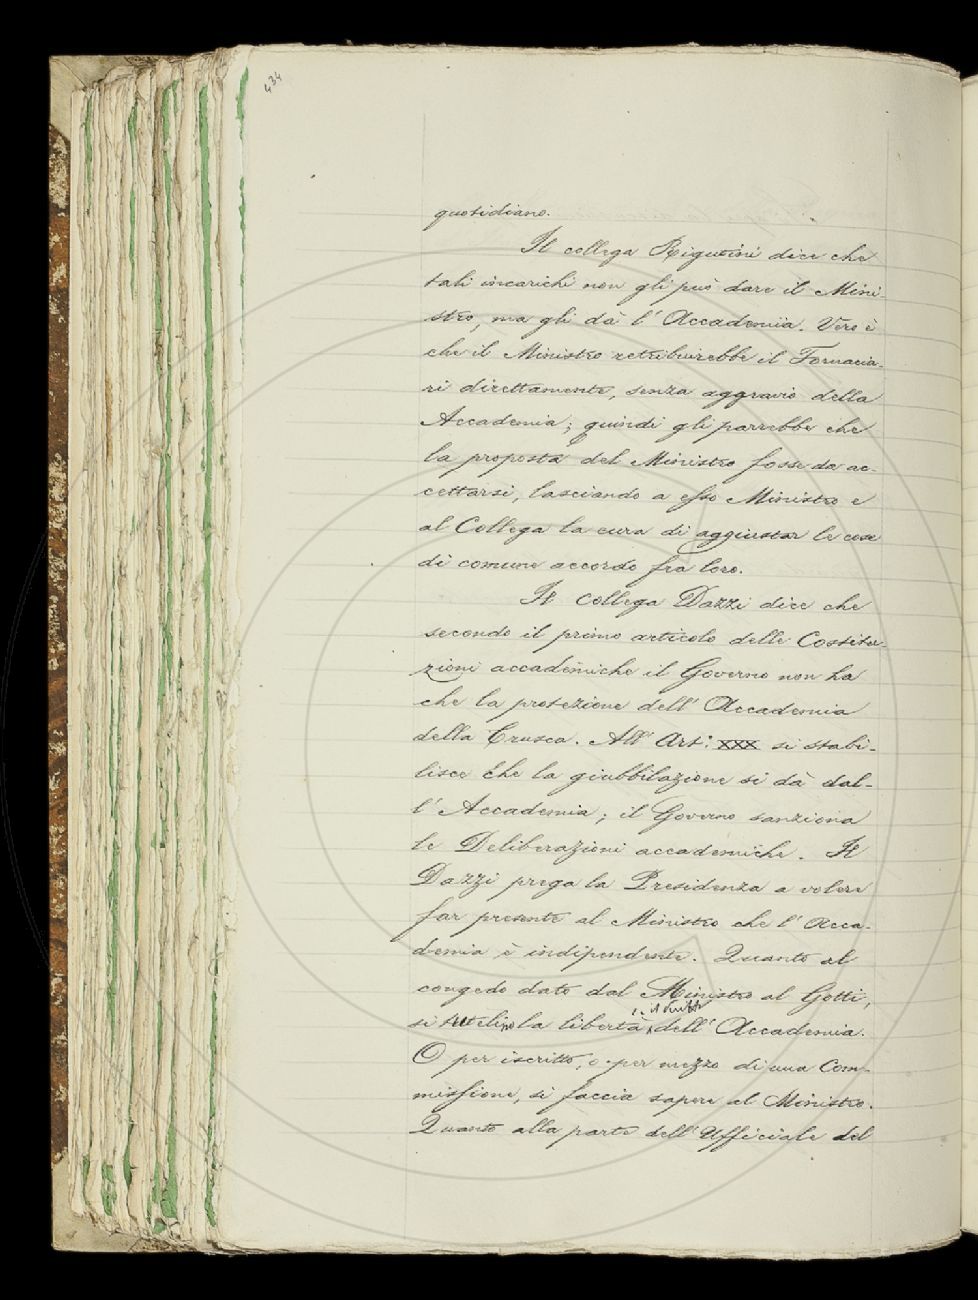 434
quotidiano.
Il collega Rigutini dice che
tali incarichi non gli può dare il Mini-
stro, ma gli dà l'Accademia. Vero è
che il Ministro retribuirebbe il Fornacia-
ri direttamente, senza aggravio della
Accademia; quindi gli parrebbe che
la proposta del Ministro fosse da ac-
cettarsi, lasciando a esso Ministro e
al Collega la cura di aggiustar le cose
di comune accordo fra loro.
Il collega Dazzi dice che
secondo il primo articolo delle Costitu-
zioni accademiche il Governo non ha
che la protezione dell'Accademia
della Crusca. All'Art: XXX si stabi-
lisce che la giubbilazione si dà dal-
l'Accademia; il Governo sanziona
le Deliberazioni accademiche. Il
Dazzi prega la Presidenza a volere
far presente al Ministro che l'Acca-
demia è indipendente. Quanto al
congedo dato dal Ministro al Gotti,
si tutelino la libertà e il diritto dell'Accademia.
O per iscritto, o per mezzo di una Com-
missione, si faccia sapere al Ministro.
Quanto alla parte dell'Ufficiale del